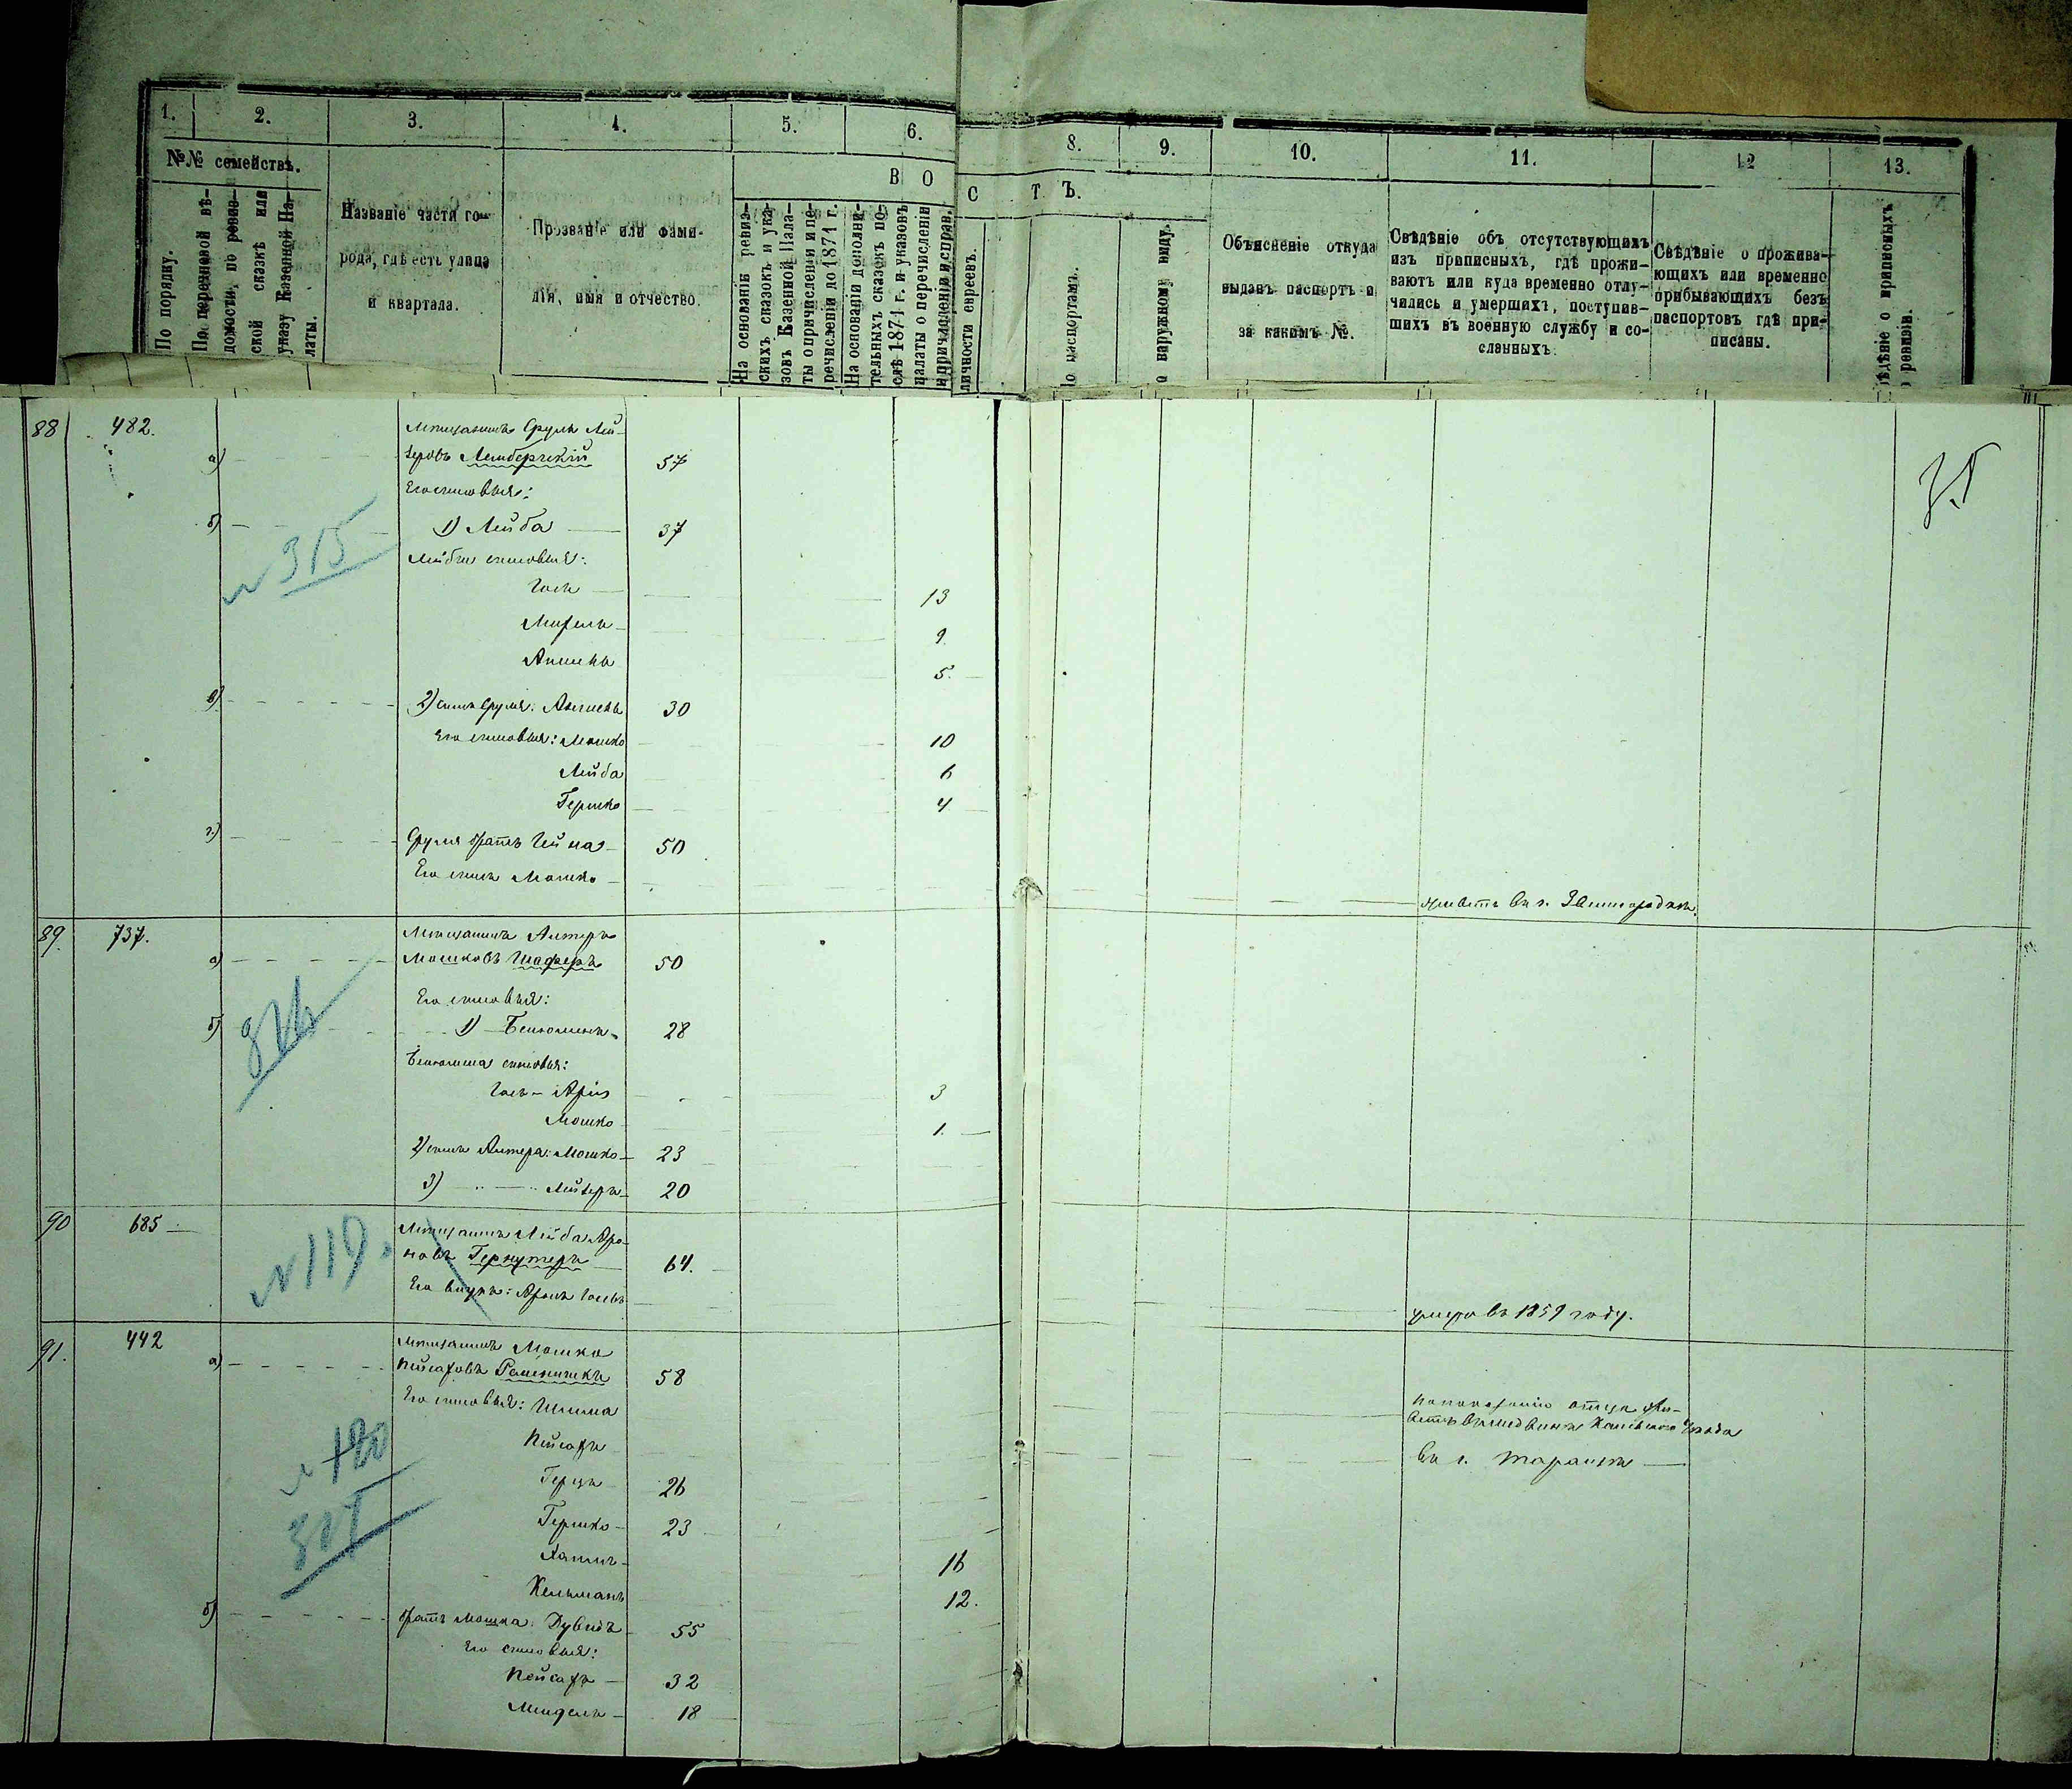 1. 2. 3. 4. 5. 6. 8. 9. 10. 11. 12 13.
№№ семействъ.
В О
С Т Ъ.
По порядку.
По переписной вѣ-
домости, по ревиз-
ской сказкѣ или
указу Казенной Па-
латы.
Названіе части го-
рода, гдѣ есть улица
и квартала.
Прозваніе или фами-
лія, имя и отчество.
На основаніи ревиз-
скихъ сказокъ и ука-
зовъ Казенной Пала-
ты о причисленіи и пе-
речисленіи до 1871 г.
На основаніи дополни-
тельныхъ сказокъ по-
слѣ 1871 г. и указовъ
палаты о перечисленіи
и причисленіи и справ.
личности евреевъ.
о паспортамъ.
о наружному виду.
Объясненіе откуда
выданъ паспортъ и
за какимъ №.
Свѣдѣніе объ отсутствующихъ
изъ приписныхъ, гдѣ прожи-
ваютъ или куда временно отлу-
чились и умершихъ, поступив-
шихъ въ военную службу и со-
сланныхъ.
Свѣдѣніе о прожива-
ющихъ или временно
прибывающихъ безъ
паспортовъ гдѣ при-
писаны.
ѣдѣніе о приписныхъ
о ревизіи.
88 482. Мѣщанинъ Сруль Лей-
а) зеровъ Лембергскій 57
Его сыновья:
б) 1) Лейба 37
№ 315
Лейбы сыновья:
Іось 13
9
Аншель 5.
в) 2) сынъ Сруля: Аншель 30
Его сыновья: Мошко 10
Лейба 6
Гершко 4
г) Сруля братъ 50
Его сынъ Мошко живетъ въ г. Звенигородкѣ.
89. 737. Мѣщанинъ Алтеръ
а) Мошковъ Шаферъ 50
Его сыновья:
б) 1) Беніоминъ 28
Беніомина сыновья:
Іось-Арія 3
Мошко 1.
2) сынъ Алтера: Мошко 23
3) Лейзеръ 20
90 685 Мѣщанинъ Лейба Аро-
новъ 64.
№ 119.
Его внукъ: Аронъ умеръ въ 1859 году.
91. 442 Мѣщанинъ Мошко
а) Пейсаховъ 58
Его сыновья: Шлима по показанію отца жи-
ветъ въ Каневскаго уѣзда
Пейсахъ въ г. Таращѣ
№ 120
Герцъ 26
Гершко 23
16
Кельманъ 12.
б) братъ Мошка: Дувидъ 55
Его сыновья:
Пейсахъ 32
Мендель 18